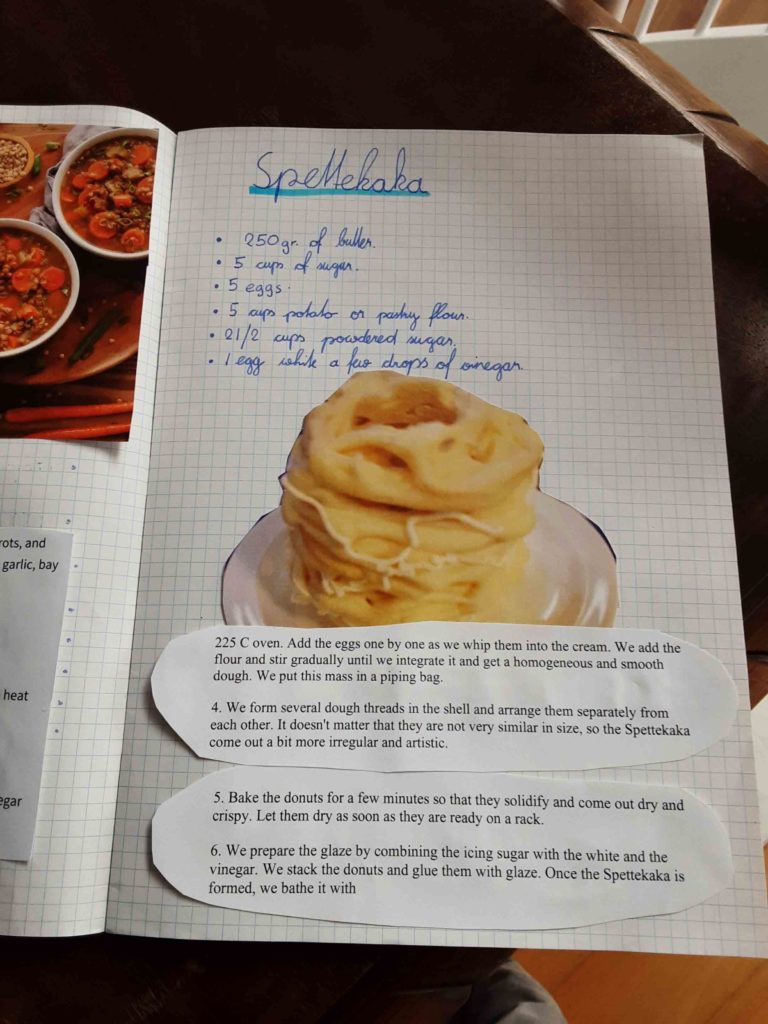 Spettekaka
• 250gr. of butter.
• 5 cups of sugar.
• 5 eggs.
• 5 cups potato or pastry flour.
• 21/2 cups powdered sugar.
• 1 egg white a few drops of vinegar.
rots, and
garlic, bay
heat
egar
225 C oven. Add the eggs one by one as we whip them into the cream. We add the
flour and stir gradually until we integrate it and get a homogeneous and smooth
dough. We put this mass in a piping bag.
4. We form several dough threads in the shell and arrange them separately from
each other. It doesn't matter that they are not very similar in size, so the Spettekaka
come out a bit more irregular and artistic.
5. Bake the donuts for a few minutes so that they solidify and come out dry and
crispy. Let them dry as soon as they are ready on a rack.
6. We prepare the glaze by combining the icing sugar with the white and the
vinegar. We stack the donuts and glue them with glaze. Once the Spettekaka is
formed, we bathe it with